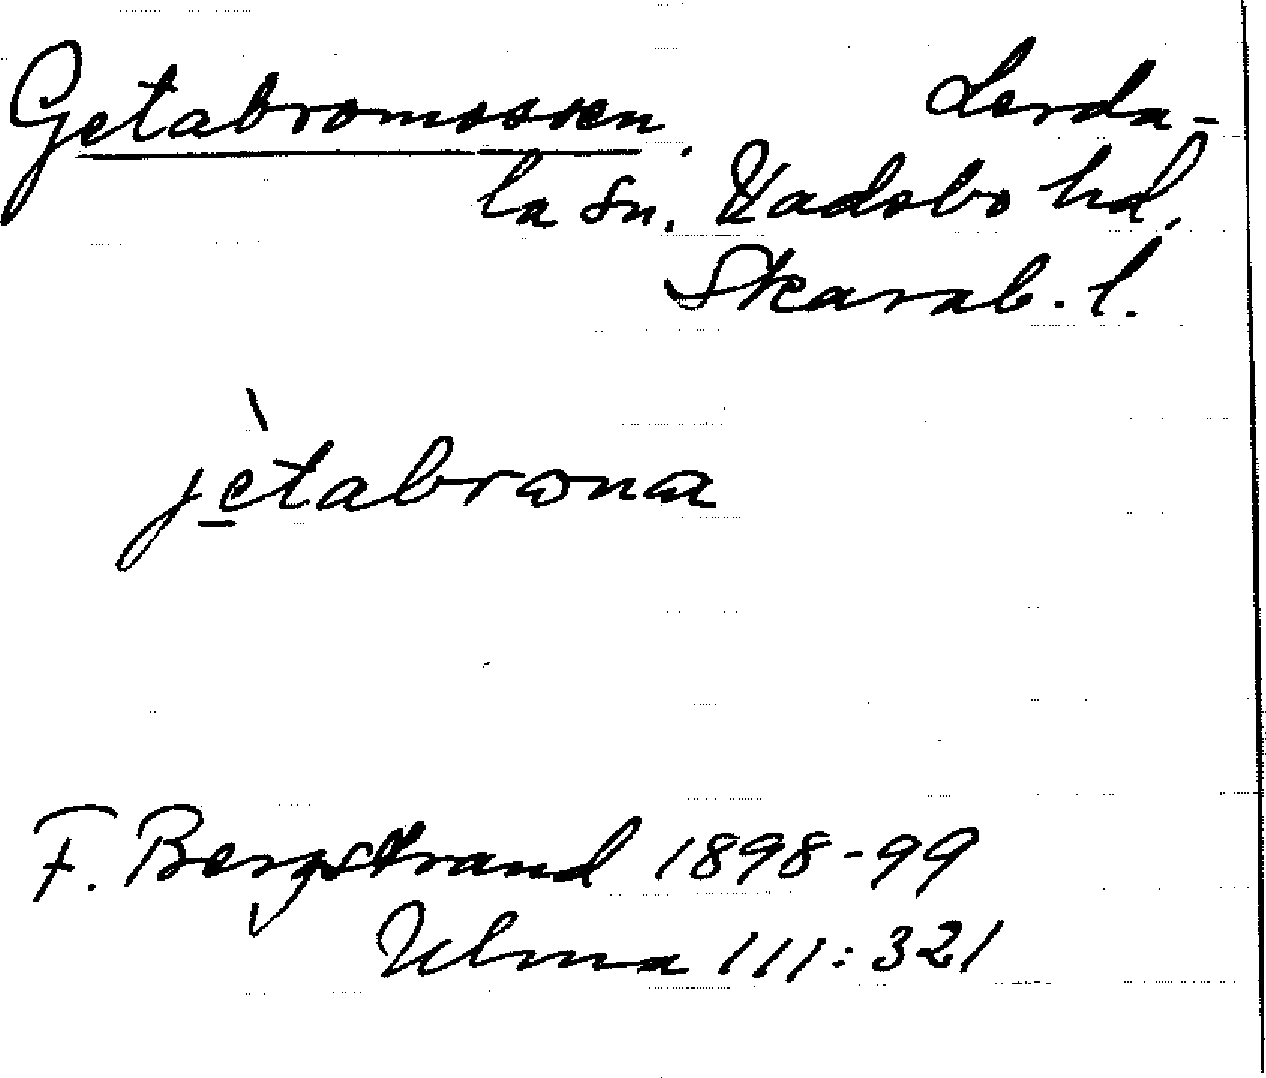 Getabromossen. Lerda-
la sn. Vadsbo hd.
Skarab. l.
jètabrωna
F. Bergstrand 1898-99
Ulma 111:321